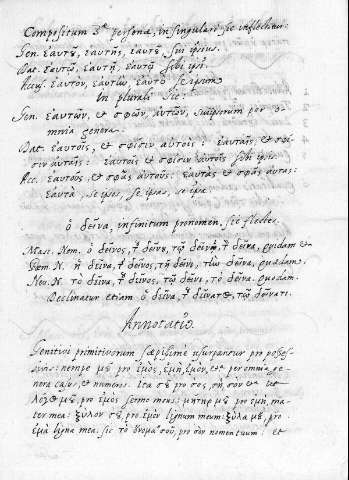 Compositum 3ae personae, in singulari sic inflectitur:
Gen. ἑαυτοῦ, ἑαυτῆς, ἑαυτοῦ sui ipsius.
Dat. ἑαυτῷ, ἑαυτῇ, ἑαυτῷ sibi ipsi.
Accus. ἑαυτὸν, ἑαυτὴν, ἑαυτὸ seipsum
In plurali sic:
Gen. ἑαυτῶν, et σφῶν αὐτῶν, suiipsorum per o-
mnia genera.
Dat. ἑαυτοῖς, et σφίσιν αὐτοῖς: ἑαυταῖς, et σφί-
σιν αὐταῖς: ἑαυτοῖς et σφίσιν αὐτοῖς sibi ipsis.
Acc. ἑαυτοὺς, et σφᾶς αὐτοὺς: ἑαυτὰς et σφᾶς αὐτὰς:
ἑαυτὰ, se ipsos, se ipsas, se ipsa.
ὁ δεῖνα, infinitum pronomen, sic flectes.
Masc. Nom. ὁ δεῖνος, τοῦ δεῖνος, τῷ δεῖνι, τὸν δεῖνα, quidam et
Foem. N. ἡ δεῖνα, τῆς δεῖνος, τῇ δεῖνι, τὴν δεῖνα, quaedam.
Neu. N. τὸ δεῖνα, τοῦ δεῖνος, τῷ δεῖνι, τὸ δεῖνα, quodam.
Declinatur etiam ὁ δεῖνα, τοῦ δείνατος, τῷ δείνατι.
Annotatio.
Genitivi primitivorum saepissime usurpantur pro posses-
sivis: nempe μοῦ pro ἐμὸς, ἐμὴ, ἐμὸν, et per omnia ge-
nera casus, et numeros. Ita σοῦ pro σὸς, σὴ, σὸν ut
λόγος μοῦ, pro ἐμὸς sermo meus: μήτηρ μοῦ pro ἐμὴ, ma-
ter mea: ξύλον μοῦ, pro ἐμὸν lignum meum: ξύλα μοῦ, pro
ἐμὰ ligna mea: sic τὸ ὄνομά σου, pro σὸν nomen tuum: et